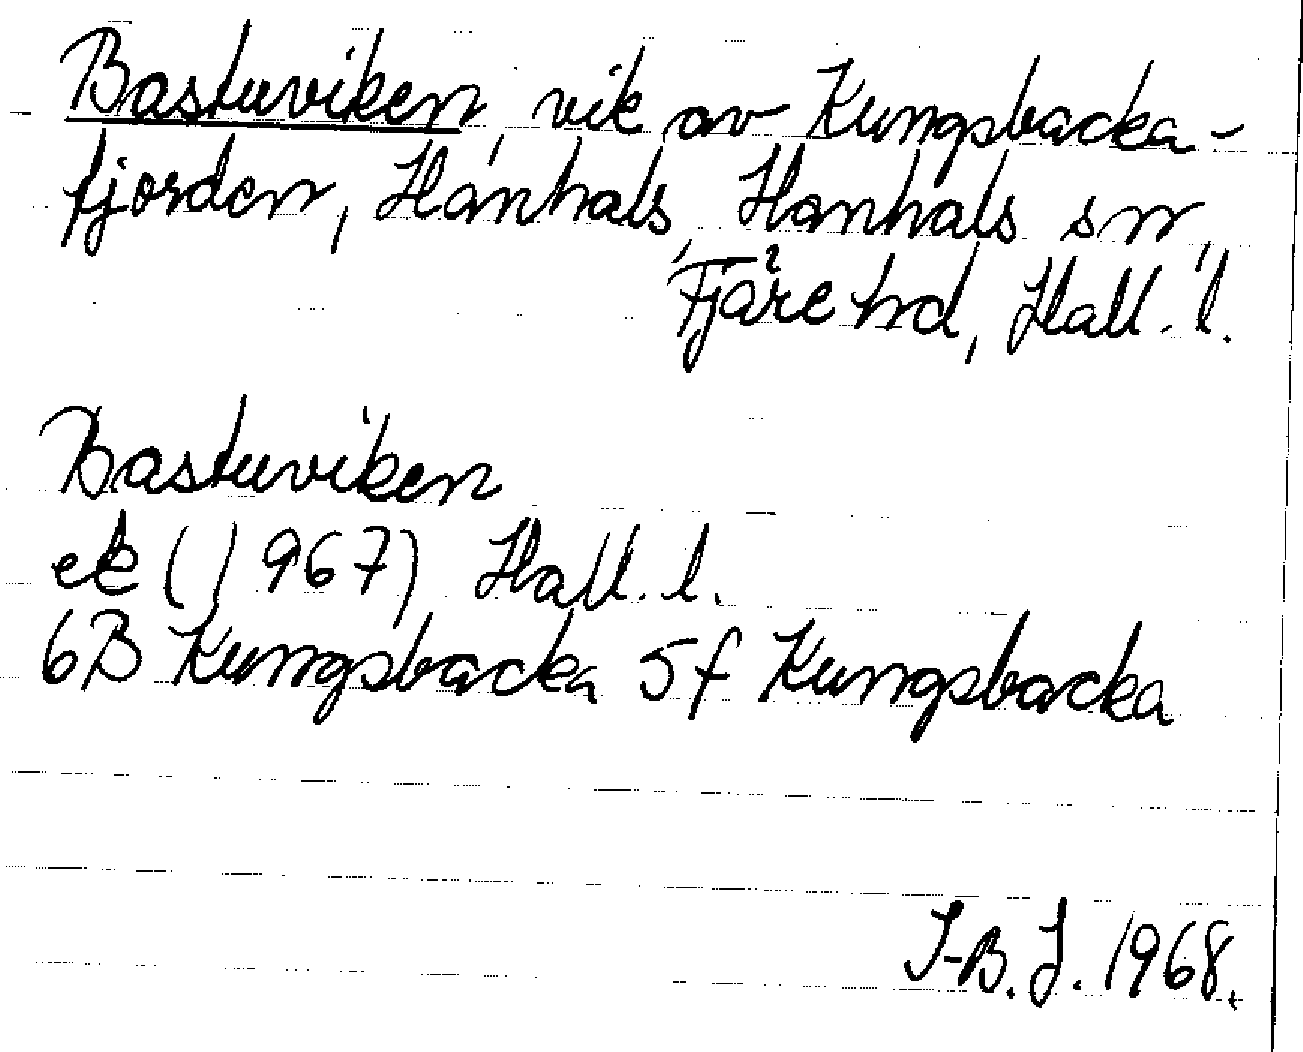 Bastuviken, vik av Kungsbacka-
fjorden, Hanhals, Hanhals sn,
Fjäre hd, Hall. l.
Bastuviken
ek (1967) Hall. l.
6B Kungsbacka 5f Kungsbacka
I-B. J. 1968.